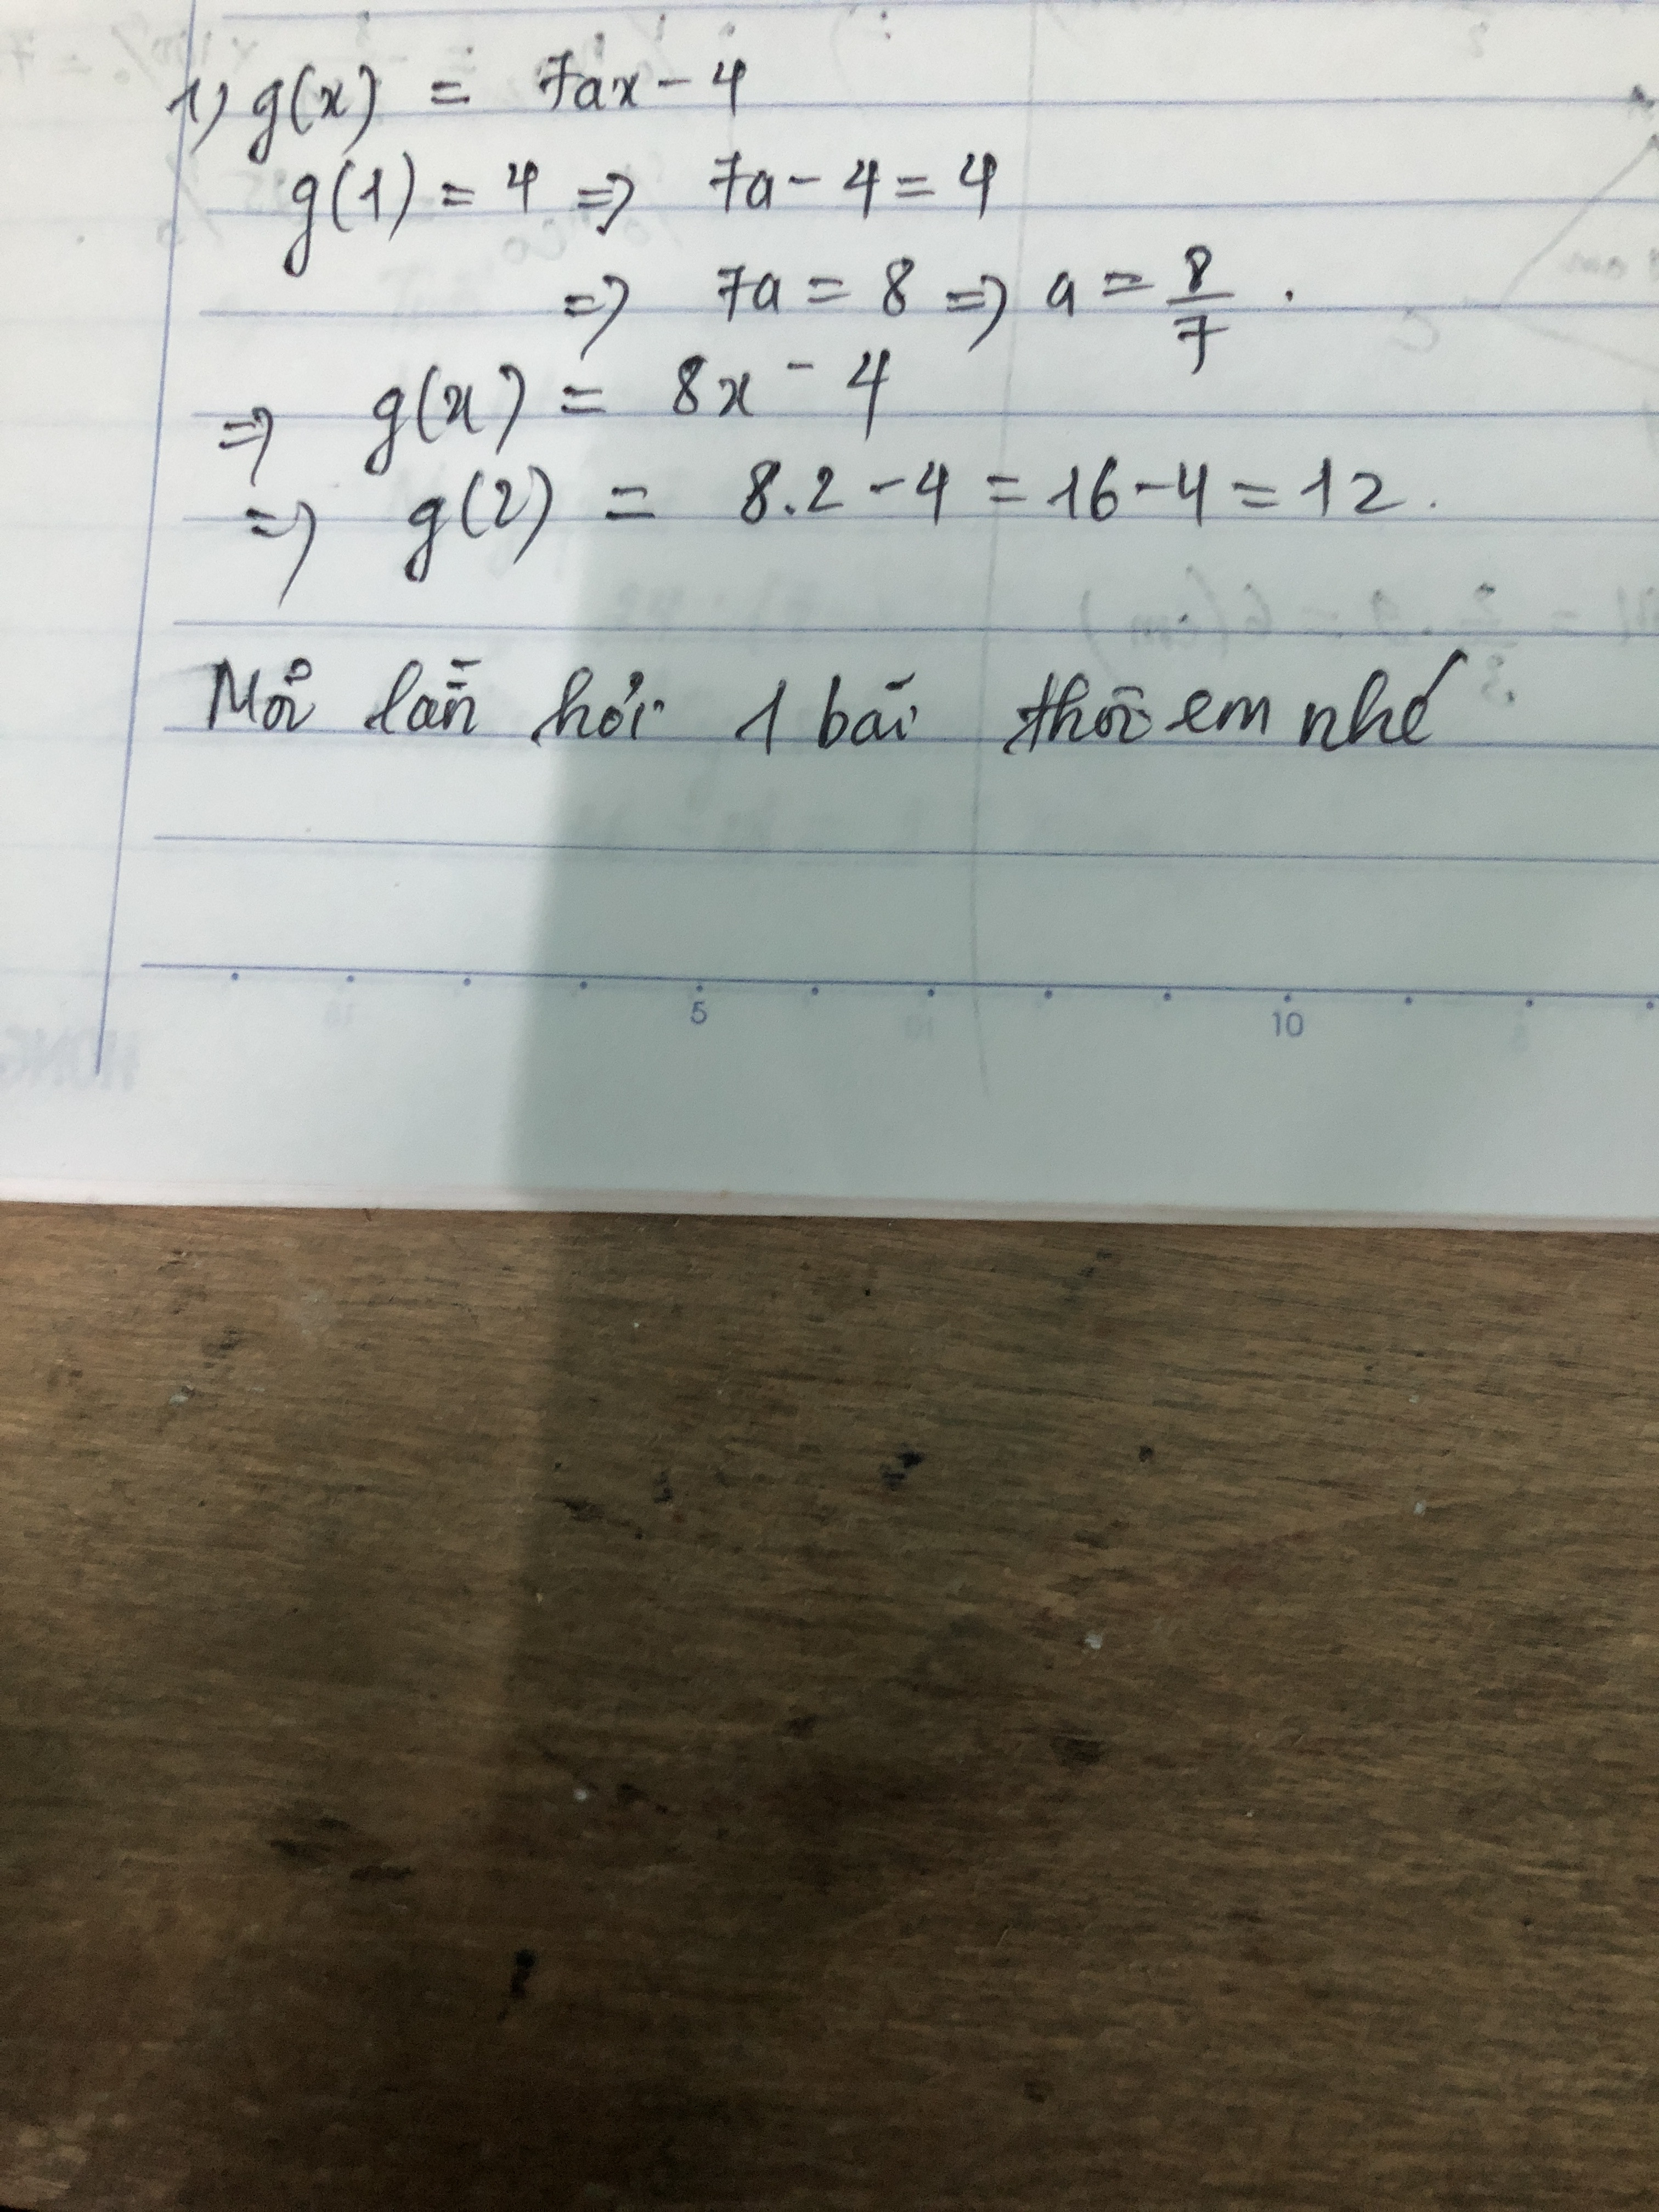 1) g(x) = 7ax - 4
g(1) = 4 => 7a - 4 = 4
=> 7a = 8 => a = 8/7 .
=> g(x) = 8x - 4
=> g(2) = 8.2 - 4 = 16 - 4 = 12 .
Mỗi lần hỏi 1 bài thôi em nhé
5 10